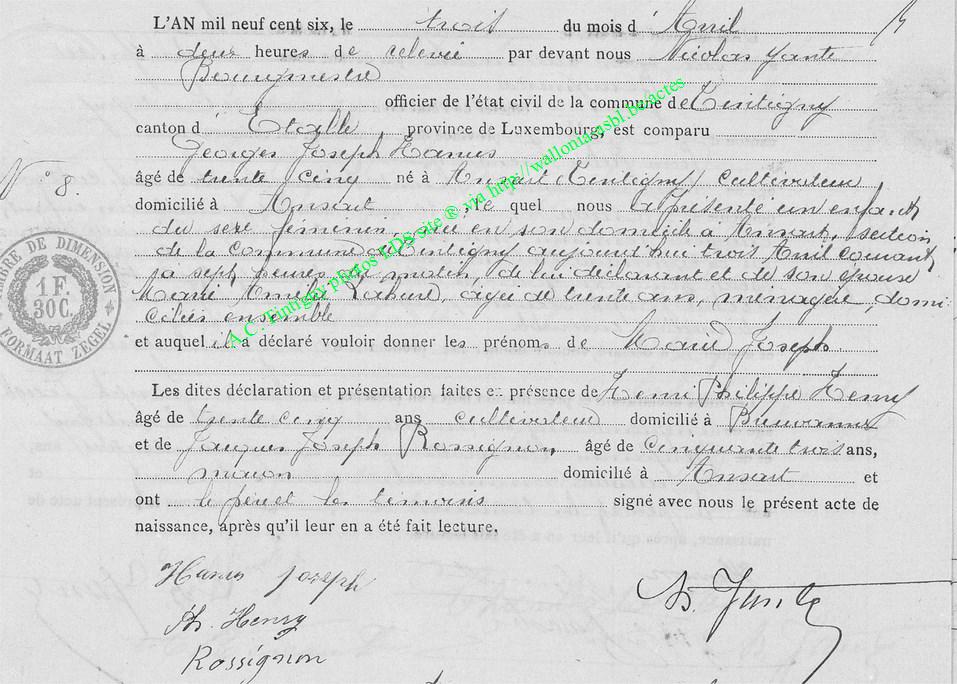 L'AN mil neuf cent six, le trois du mois d'Avril
à deux heures de relevée par devant nous Nicolas Jante
Bourgmestre
officier de l'état civil de la commune de Tintigny
canton d'Etalle, province de Luxembourg, est comparu
Georges Joseph Hanus
N° 8.
âgé de trente cinq né à Ansart (Tintigny) cultivateur
domicilié à Ansart, le quel nous a présenté un enfant
du sexe féminin, née en son domicile à Ansart, section
de la commune de Tintigny aujourd'hui trois Avril courant
à sept heures du matin, de lui déclarant et de son épouse
Marie Amélie Lahure, âgée de trente ans, ménagère, domi
ciliés ensemble
et auquel il a déclaré vouloir donner les prénoms de Marie Joseph
Les dites déclaration et présentation faites en présence de Henri Philippe Henry
âgé de trente cinq ans cultivateur domicilié à Buzenol
et de Jacques Joseph Rossignon, âgé de cinquante trois ans,
maçon domicilié à Ansart et
ont le père et les témoins signé avec nous le présent acte de
naissance, après qu'il leur en a été fait lecture.
Hanus Joseph
Ph. Henry
Rossignon
N. Jante
TIMBRE DE DIMENSION
1 F.
30C.
FORMAAT ZEGEL
A.C. Tintigny photos LDS site ® via http://wallonia-asbl.be/actes